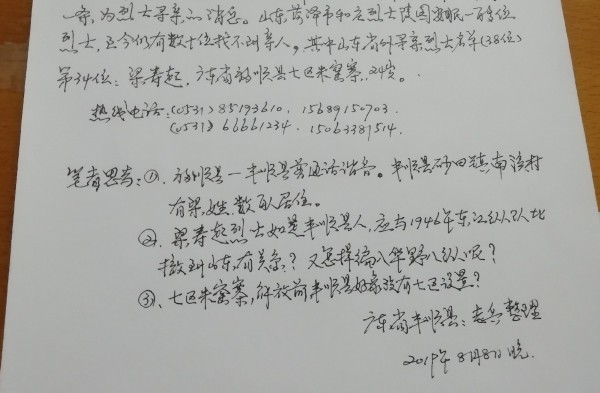 寄,为烈士寻亲的消息。山东菏泽市和庄烈士陵园安眠一百多位
烈士,至今仍有数十位找不到亲人,其中山东省外寻亲烈士名单(38位)
第34位:梁寿起,广东省的顺县七区朱密寨,24岁。
热线电话:(0531)85193610、15689150703.
(0531)66661234、15063387514.
笔者思考:①、的顺县—丰顺县普通话谐音。丰顺县砂田镇南溪村
有梁姓数百人居住。
②、梁寿起烈士如是丰顺县人,应与1946年东江纵队北
撤到山东,有关系?又怎样编入华野八纵呢?
③、七区朱密寨,解放前丰顺县好象没有七区设置?
广东省丰顺县:志兵整理
2019年8月8日晚.